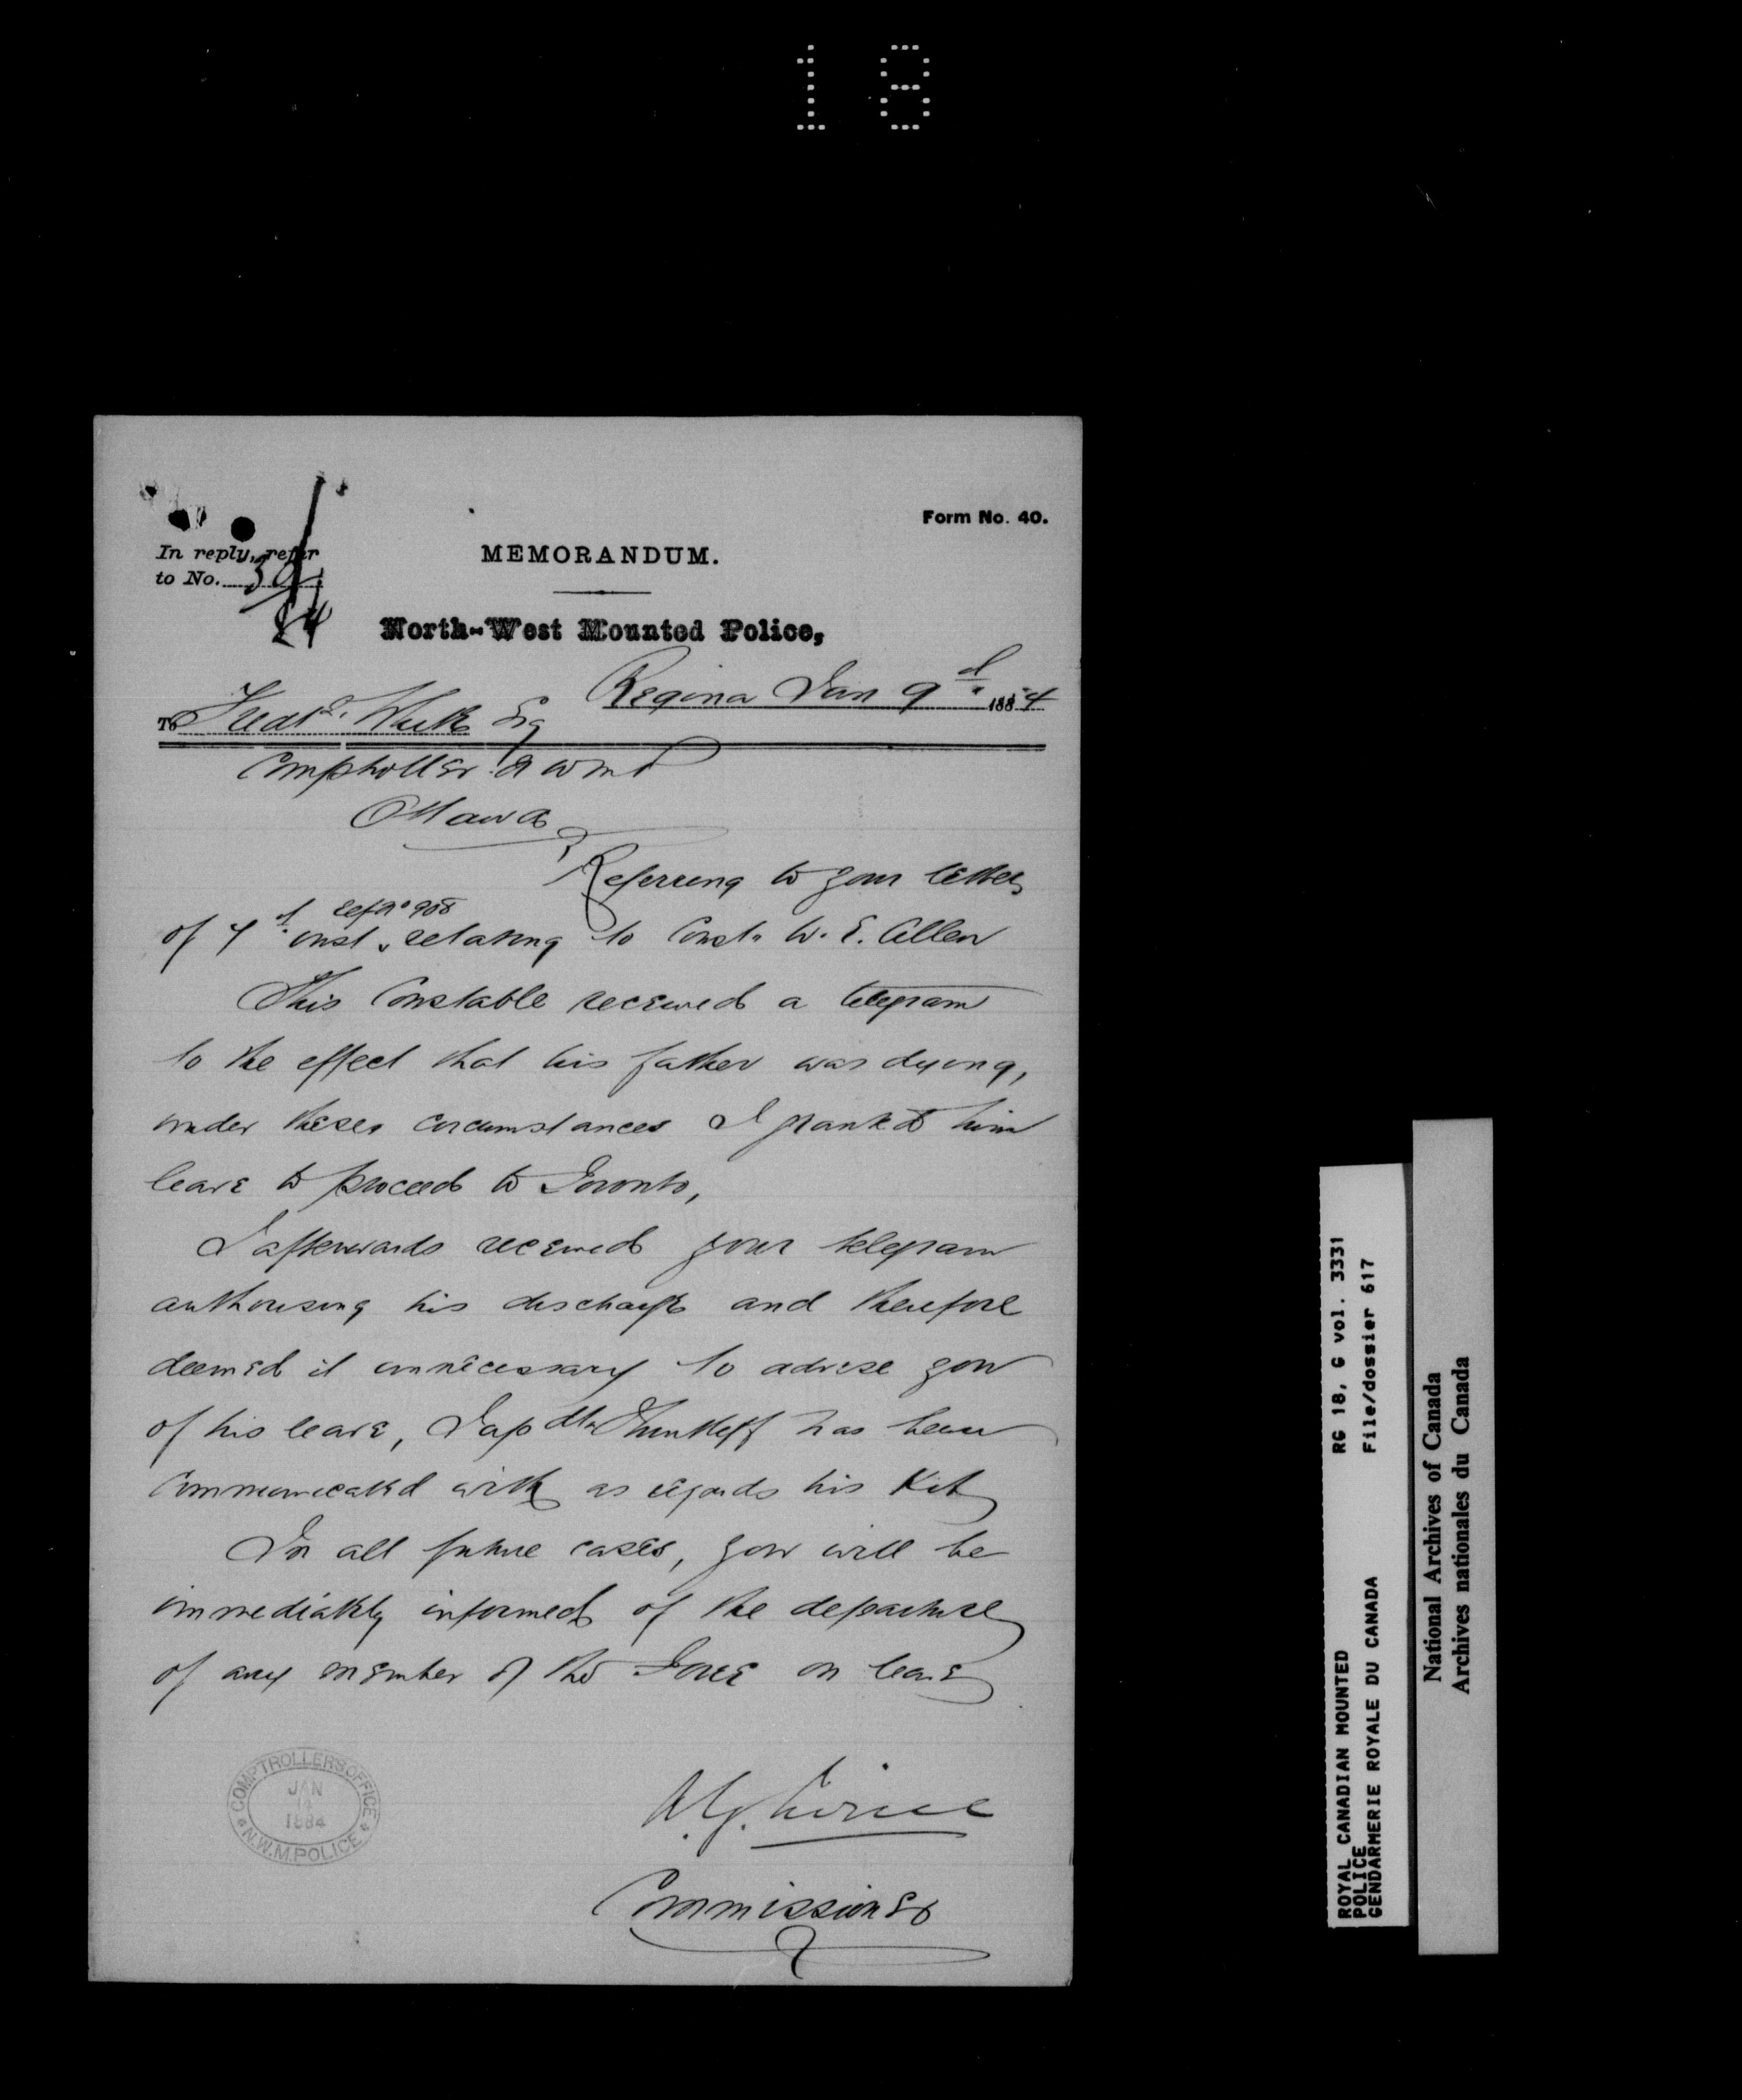 18
Form No. 40.
In reply, refer
to No. 39
84
MEMORANDUM.
North-West Mounted Police,
Regina Jan 9th 1884
To Fredk. White Esq
Comptroller N W M P
Ottawa
Referring to your letter
of 4th inst, relating to Const. W. E. Allen
This Constable received a telegram
to the effect that his father was dying,
under these circumstances I granted him
leave to proceed to Toronto,
I afterwards received your telegram
authorising his discharge and therefore
deemed it unnecessary to advise you
of his leave, has been
communicated with as regards his Kit
In all future cases, you will be
immediately informed of the departure
of any member of the Force on leave
A.G. Irvine
Commissioner
COMPTROLLERS OFFICE
JAN
1884
N.W.M. POLICE
ROYAL CANADIAN MOUNTED RG 18, G vol. 3331
POLICE
GENDARMERIE ROYALE DU CANADA File/dossier 617
National Archives of Canada
Archives nationales du Canada